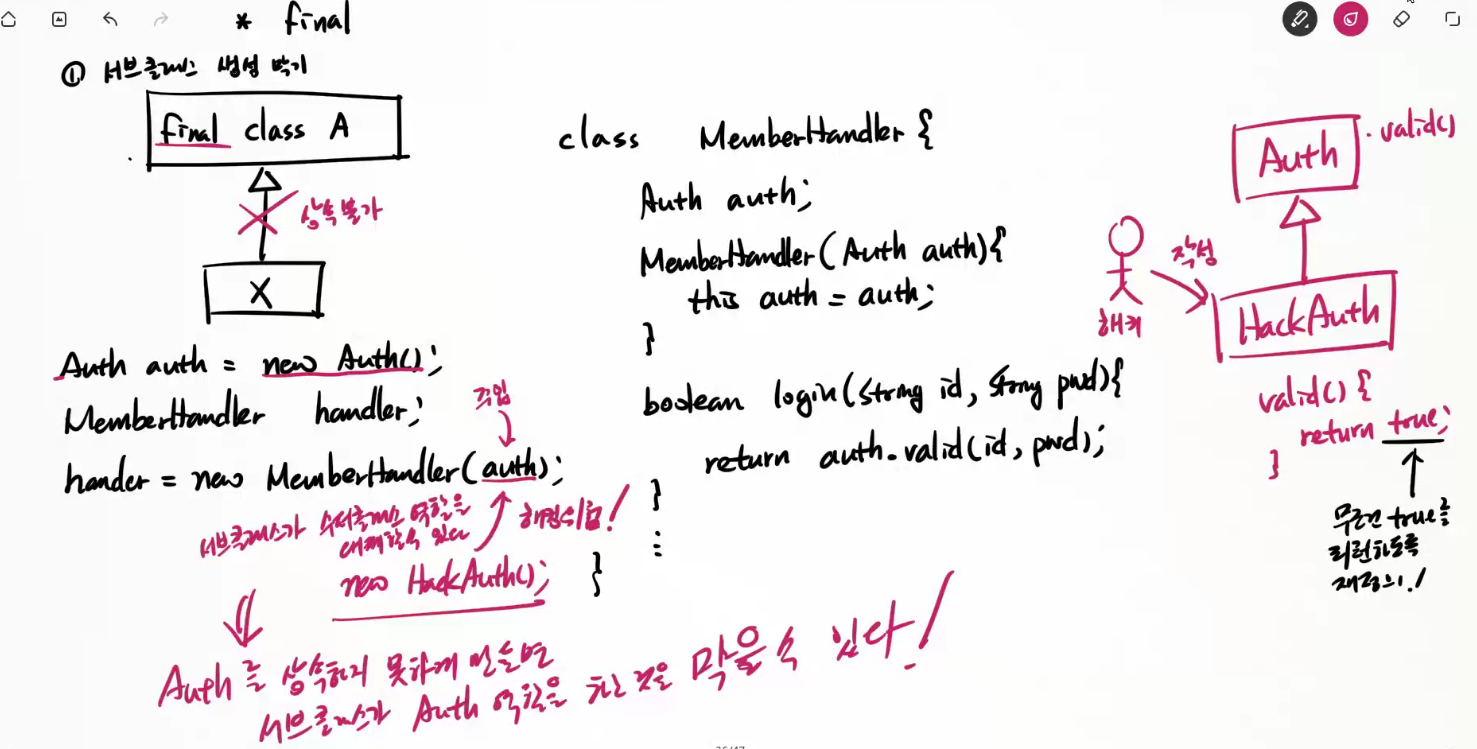 * final
① 서브클래스 생성 막기
final class A
상속불가
X
Auth auth = new Auth();
MemberHandler handler;
주입
hander = new MemberHandler(auth);
서브클래스가 수퍼클래스 역할을
대체할 수 있다
해킹위험!
new HackAuth();
Auth를 상속하지 못하게 만들면
서브클래스가 Auth 역할을 하는 것을 막을 수 있다!
class MemberHandler {
Auth auth;
MemberHandler(Auth auth){
this auth = auth;
}
boolean login(String id, String pwd){
return auth.valid(id, pwd);
}
⋮
}
Auth
• valid()
작성
해커
HackAuth
valid() {
return true;
}
무조건 true를
리런하도록
재정의!